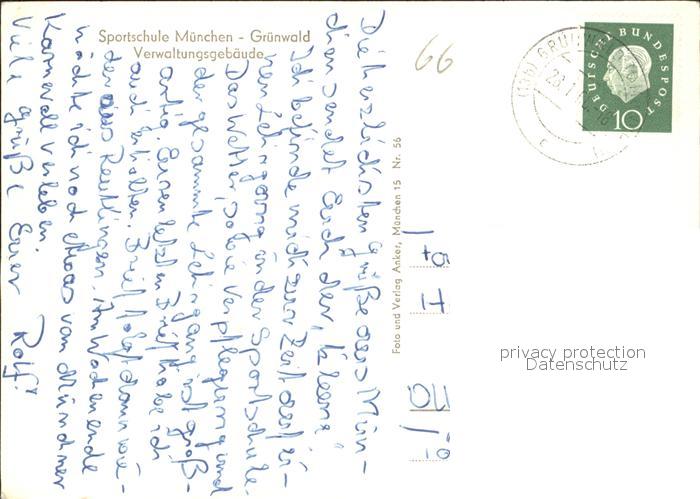 Sportschule München - Grünwald
Verwaltungsgebäude
66
DEUTSCHE BUNDESPOST
10
Die herzlichsten Grüße aus Mün-
chen sendet Euch der, kleene'
Ich befinde mich zur Zeit auf ei-
nen Lehrgang in der Sportschule.
Das Wetter, sowie Verpflegung und
der gesammte Lehrgang ist groß-
artig. Euren letzten Brief habe ich
auch erhalten. Brief folgt dann wie-
der aus Reutlingen. Am Wochenende
möchte ich noch etwas vom Münchner
Karneval verleben.
Viele Grüße Euer Rolf.
Foto und Verlag Anker, München 15 Nr. 56
privacy protection
Datenschutz